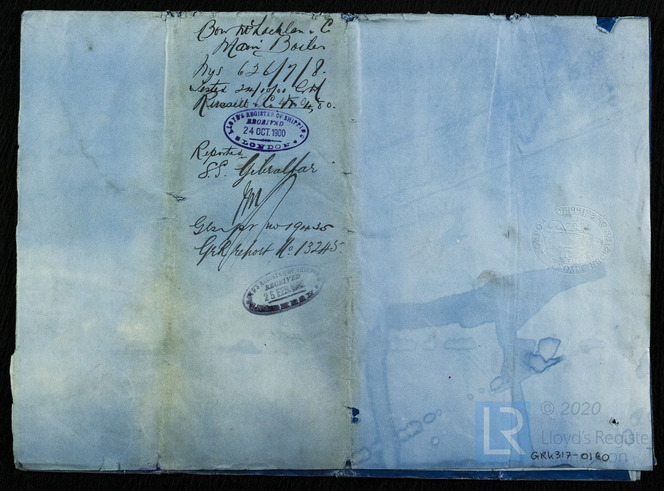 Bow McLachlan & C
Main Boiler
Nos 626/7/8.
Tested 24/10/00
Russell & Co
LLOYD'S REGISTER OF SHIPPING
RECEIVED
24 OCT. 1900
LONDON
Reported
S.S. Gibraltar
JM
Gls rpt no 19435
Grk report No 13245
RECEIVED
LR
© 2020
Lloyd's Register
GRK317-0160